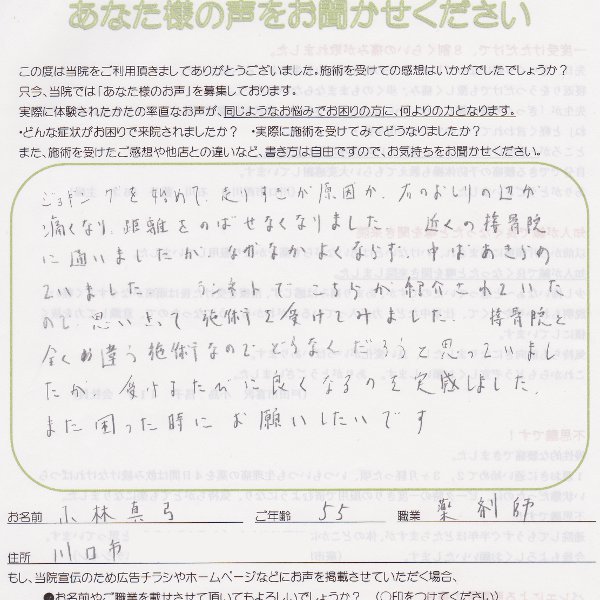 あなた様の声をお聞かせください
この度は当院をご利用頂きましてありがとうございました。施術を受けての感想はいかがでしたでしょうか?
只今、当院では「あなた様のお声」を募集しております。
実際に体験されたかたの率直なお声が、同じようなお悩みでお困りの方に、何よりの力となります。
・どんな症状がお困りで来院されましたか? ・実際に施術を受けてみてどうなりましたか?
また、施術を受けたご感想や他店との違いなど、書き方は自由ですので、お気持ちをお聞かせください。
ジョギングを始めて、走りすぎが原因か、右のおしりの辺が
痛くなり、距離をのばせなくなりました 近くの接骨院
に通いましたが、なかなかよくならず、中ばあきらめ
ていました ランネットで、こちらが紹介されていた
ので、思い立って 施術を受けてみました、 接骨院と
全くめ違う施術なのでどうなくだろうと思っていまし
たが、受けるたびに良くなるのを実感しました、
また困った時に お願いしたいです
お名前 小林真弓 ご年齢 55 職業 薬剤師
住所 川口市
もし、当院宣伝のため広告チラシやホームページなどにお声を掲載させていただく場合、
●お名前やご職業を載せさせて頂いてもよろしいでしょうか? (○印をつけてください)